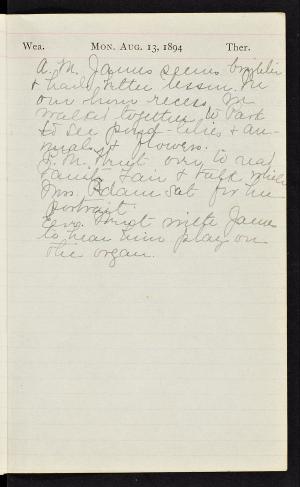 Wea. MON. AUG. 13, 1894 Ther.
A. M. James seems brighter
& had better lesson. In
our hour recess, we
walked together to Park
to see pond-lilies & an-
imals & flowers.
P. M. Went over to read
Vanity Fair & talk while
Mrs. Adam sat for her
portrait.
Eve. Went with James
to hear him play on
the organ.